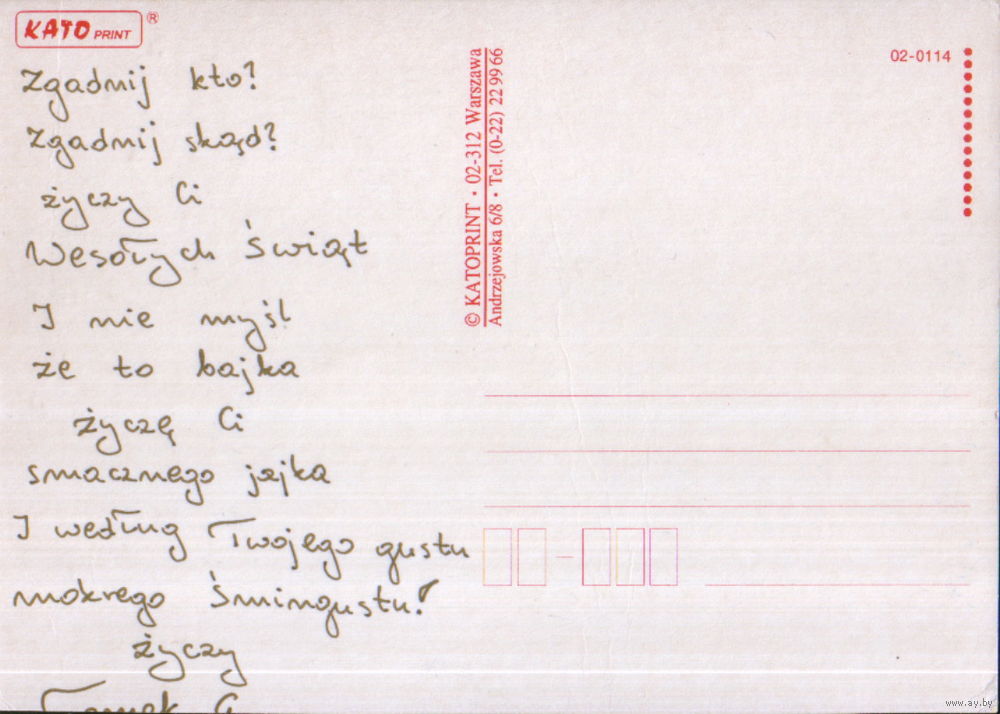 KATO PRINT ®
Zgadnij kto?
Zgadnij skąd?
życzy Ci
Wesołych Świąt
I nie myśl
że to bajka
życzę Ci
smacznego jajka
I według Twojego gustu
mokrego Śmingustu!
życzy
© KATOPRINT • 02-312 Warszawa
Andrzejowska 6/8 • Tel. (0-22) 22 99 66
02-0114
www.ay.by